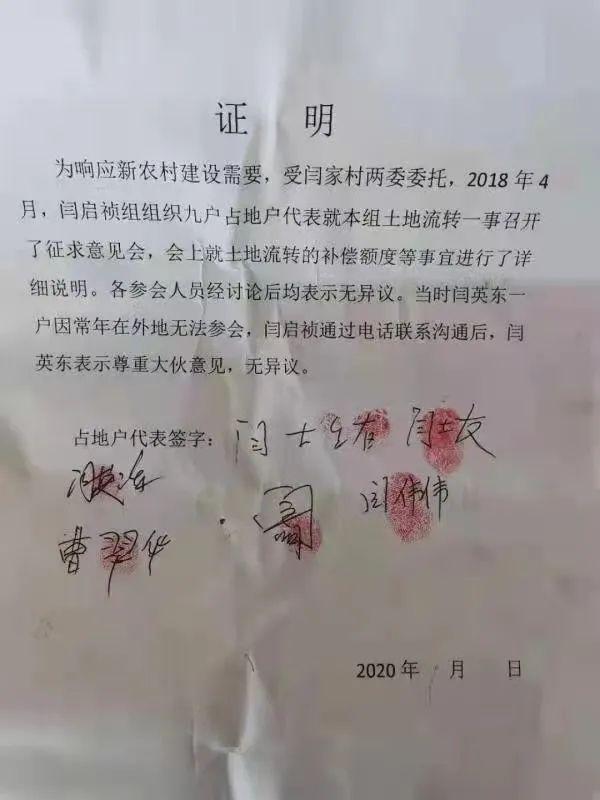 证 明
为响应新农村建设需要，受闫家村两委委托，2018 年 4
月，闫启祯组组织九户占地户代表就本组土地流转一事召开
了征求意见会，会上就土地流转的补偿额度等事宜进行了详
细说明。各参会人员经讨论后均表示无异议。当时闫英东一
户因常年在外地无法参会，闫启祯通过电话联系沟通后，闫
英东表示尊重大伙意见，无异议。
占地户代表签字：闫士 闫士友
闫伟伟
曹翠华
2020 年 月 日